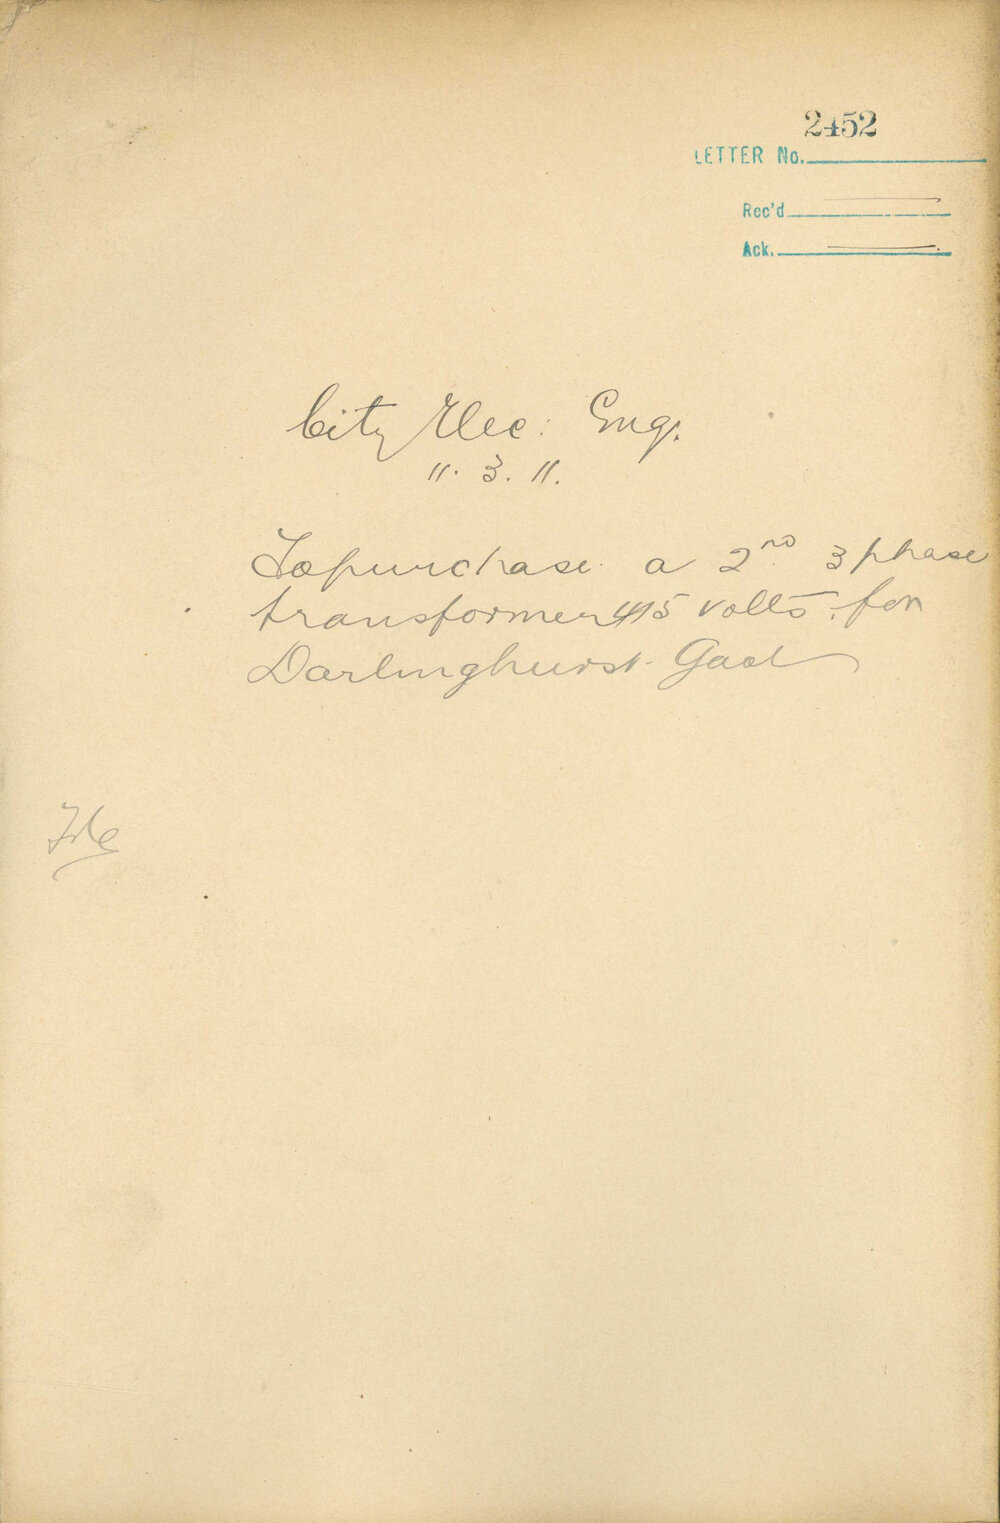 2452
LETTER No.
Rec'd
Ack.
City Elec: Eng.
11. 3. 11.
To purchase a 2nd 3 phase
transformer 415 volts for
Darlinghurst Gaol
File